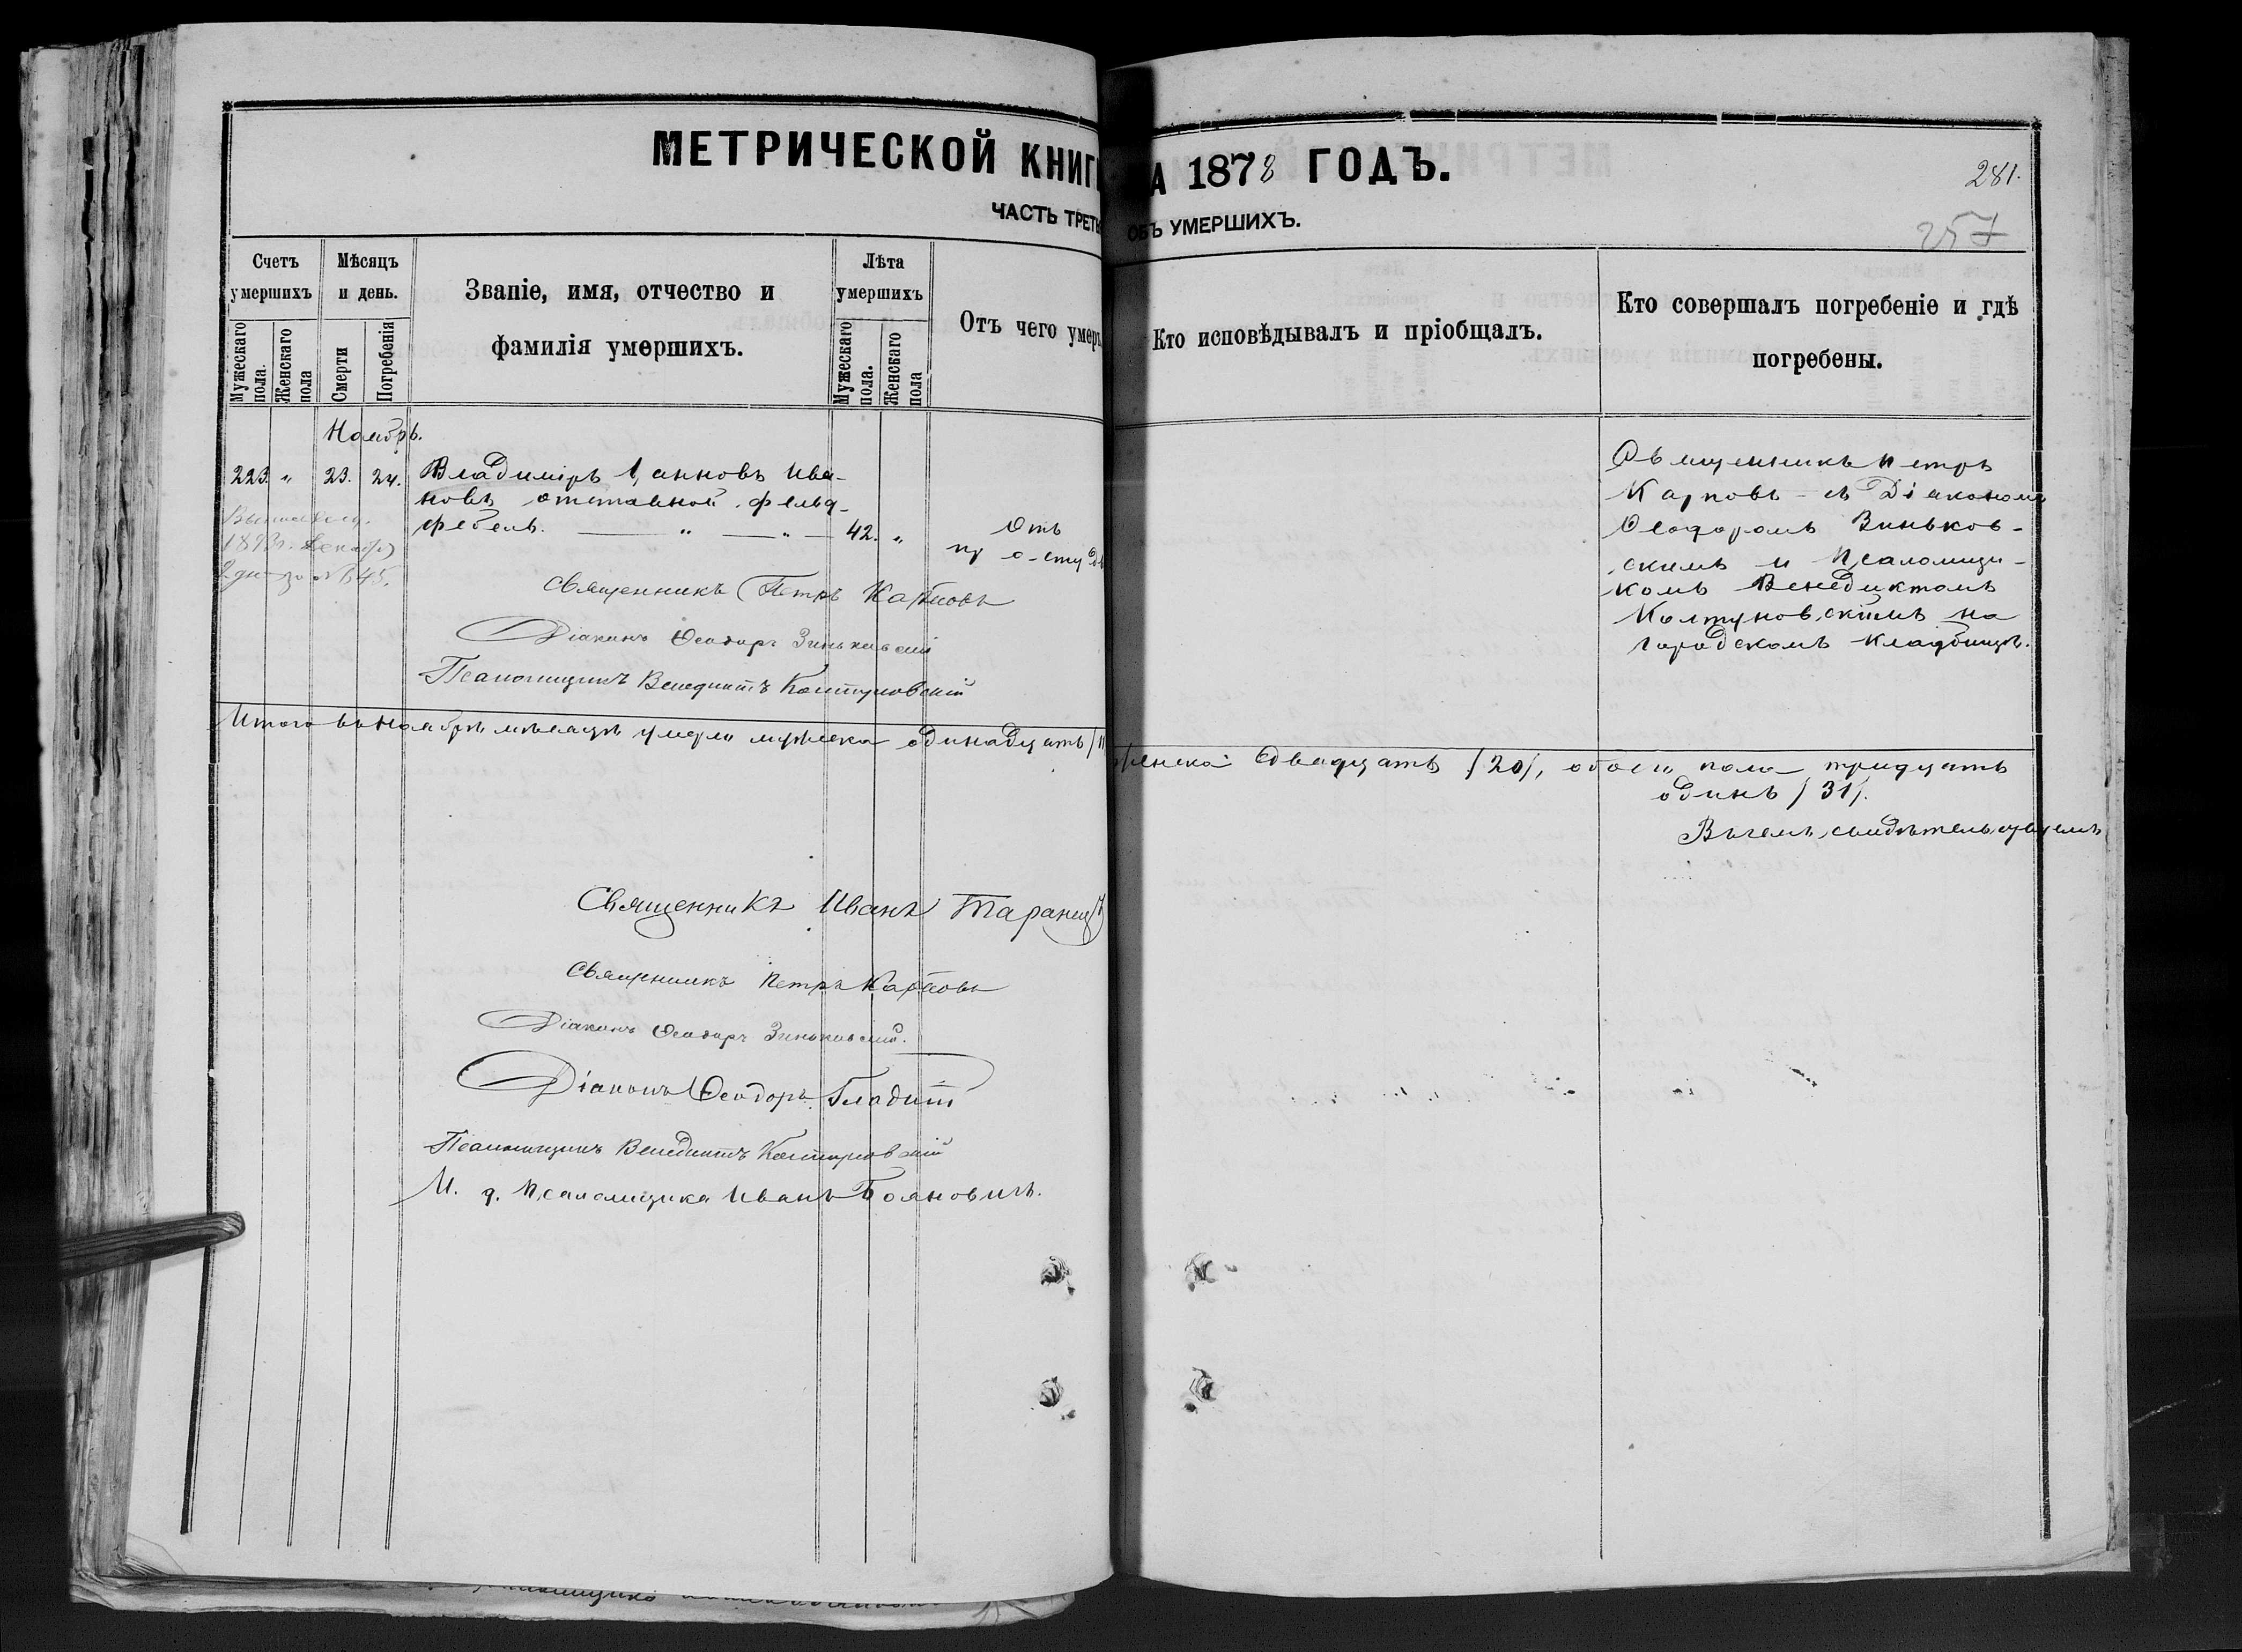 МЕТРИЧЕСКОЙ КНИГ
А 1878 ГОДЪ.
281.
257
ЧАСТЬ ТРЕТЬ
ОБЪ УМЕРШИХЪ.
Счетъ умершихъ
Мужескаго пола.
Женскаго пола
Мѣсяцъ и день.
Смерти
Погребенія
Званіе, имя, отчество и
фамилія умершихъ.
Лѣта умершихъ
Мужескаго пола.
Женскаго пола
Отъ чего умер
Кто исповѣдывалъ и пріобщалъ.
Кто совершалъ погребеніе и гдѣ
погребены.
Ноябрь.
223. " 23. 24. Владиміръ Іоанновъ Ива-
новъ отставной фельд-
фебель. " " 42. "
Отъ
простуды
1893г. Декабря
2 дня за № 545.
Священникъ Петръ
Карповъ съ Діакономъ
Ѳеодоромъ Зиньков-
скимъ и Псаломщи-
комъ Венедиктомъ
Колтуновскимъ на
городскомъ кладбищѣ.
Священникъ Петръ Карповъ
Діаконъ Ѳеодоръ Зиньковскій
Псаломщикъ Венедиктъ Колтуновскій
Итого въ Ноябрѣ мѣсяцѣ умерло мужеска одинадцать /11
женска двадцать /20/, обоего пола тридцать
одинъ /31/.
Въ чемъ свидѣтельствуемъ
Священникъ Иванъ
Священникъ Петръ Карповъ
Діаконъ Ѳеодоръ Зиньковскій.
Діаконъ Ѳеодоръ Гладкій
Псаломщикъ Венедиктъ Колтуновскій
И. д. Псаломщика Иванъ Бояновичъ.